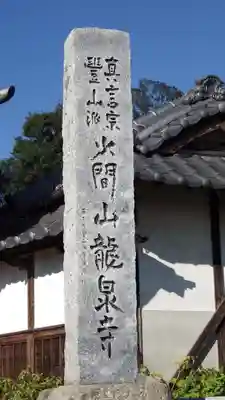 真言宗
豐山派
火間山龍泉寺